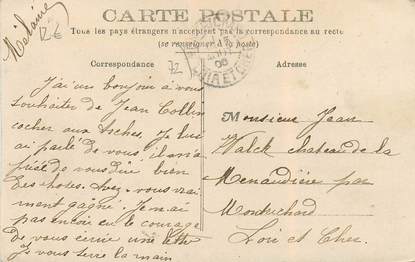 Melaine
12 €
CARTE POSTALE
Tous les pays étrangers n'acceptent pas la correspondance au recto
(se renseigner à la poste)
Correspondance
Adresse
72
J'ai un bonjour a vous
souhaiter de Jean Collin
cocher aux Arches. Je lui
ai parlé de vous, il m'a
de vous dire bien
des choses. Avez-vous vrai
ment gagné. Je n'ai
pas encore eu le courage
de vous écrire une lettre
Je vous serre la main
Monsieur Jean
Valck chateau de la
Menaudière par
Montrichard
Loir et Cher